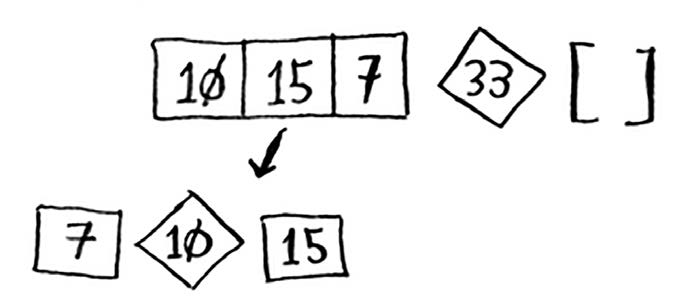 10 15 7 33 [ ]
7 10 15